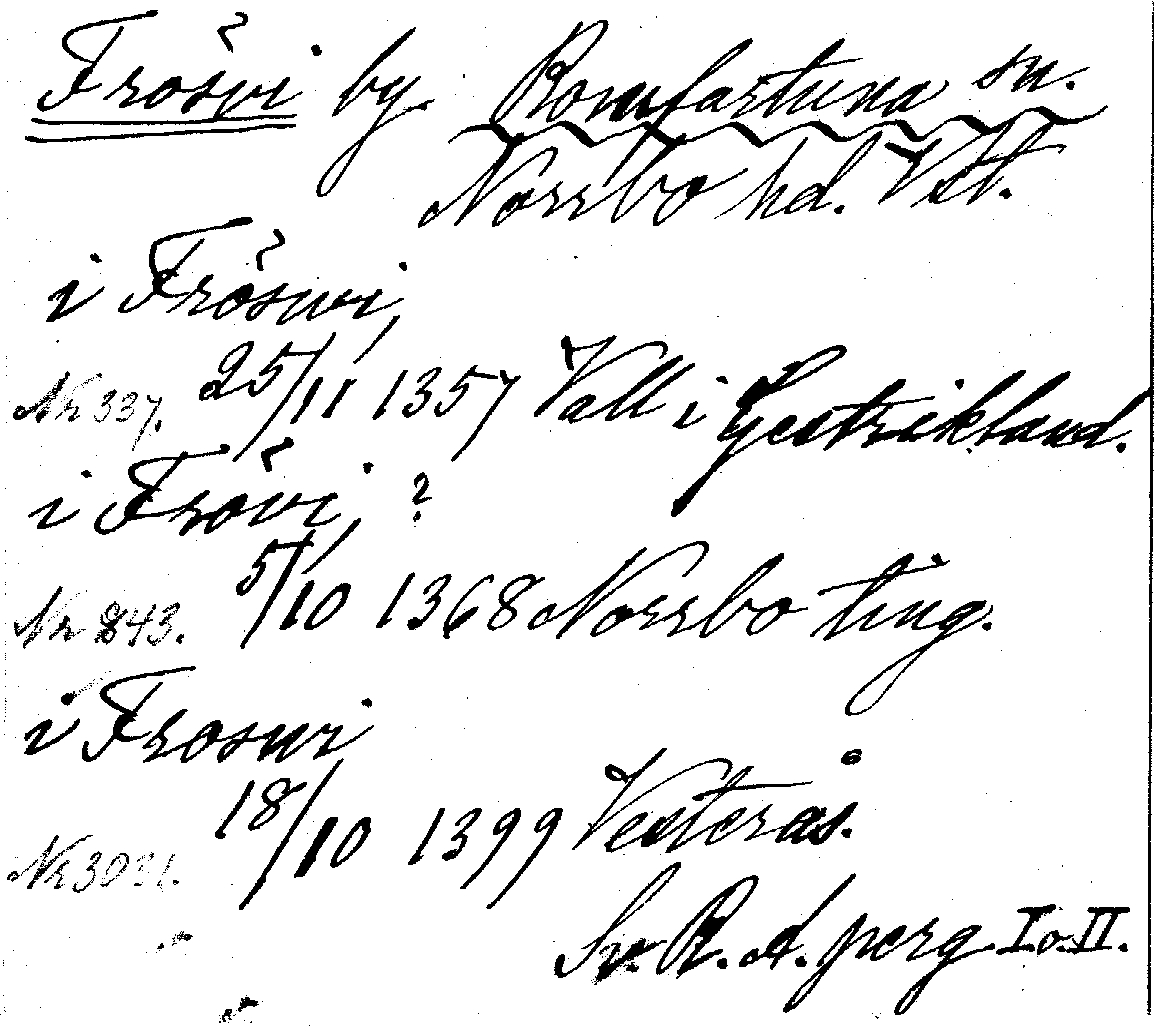 Frösvi by Romfartuna sn.
Norrbo hd. Vstl.
i Frösvi,
Nr 337. 25/11 1357 Vall i Gestrikland.
i Frövi, ?
Nr 843. 5/10 1368 Norrbo ting.
i Froswi
Nr 3031. 18/10 1399 Vesterås.
Sv. R. A. perg I o. II.